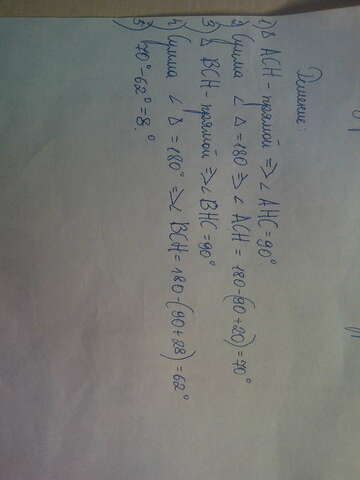 Решение:
1) Δ ACH - прямой => ∠ AHC = 90°
2) Сумма ∠ Δ = 180 => ∠ ACH = 180-(90+20) = 70°
3) Δ BCH - прямой => ∠ BHC = 90°
4) Сумма ∠ Δ = 180° => ∠ BCH = 180-(90+28) = 62°
5) 70°-62° = 8°.